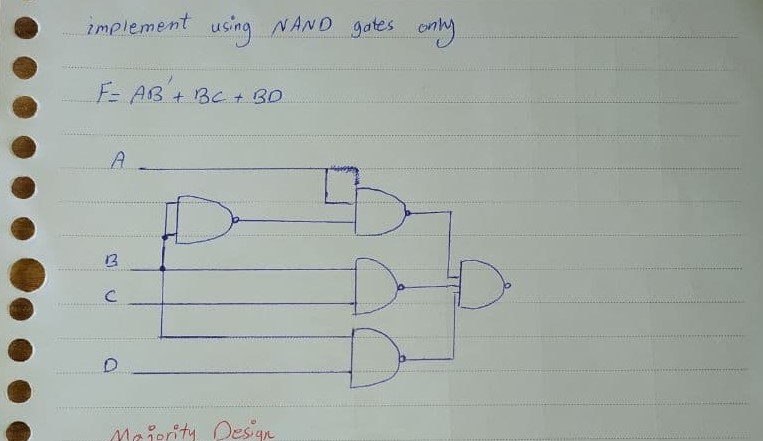 implement using NAND gates only
F= AB' + BC + BD
A
B
C
D
Majority Design